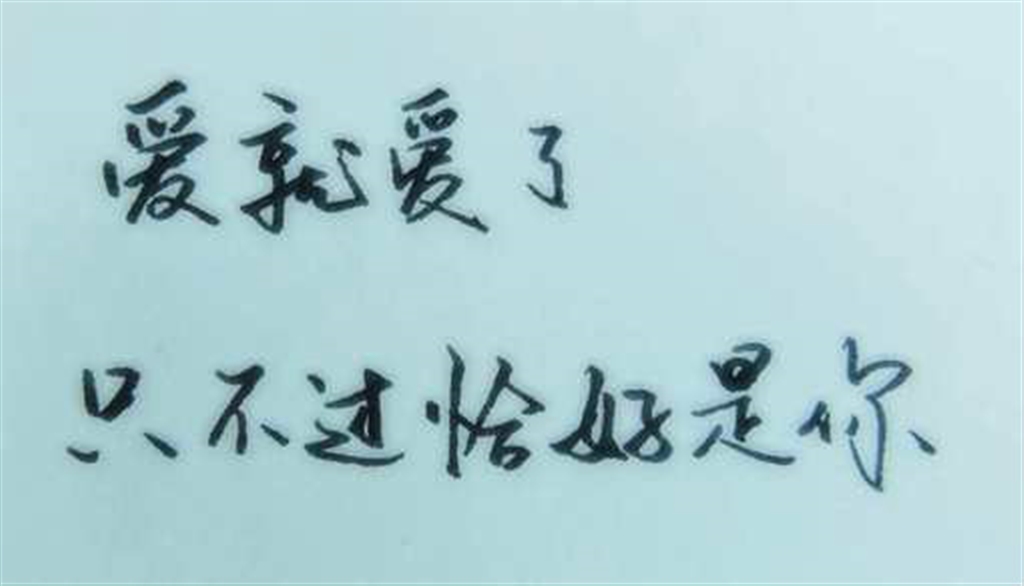 爱就爱了
只不过恰好是你